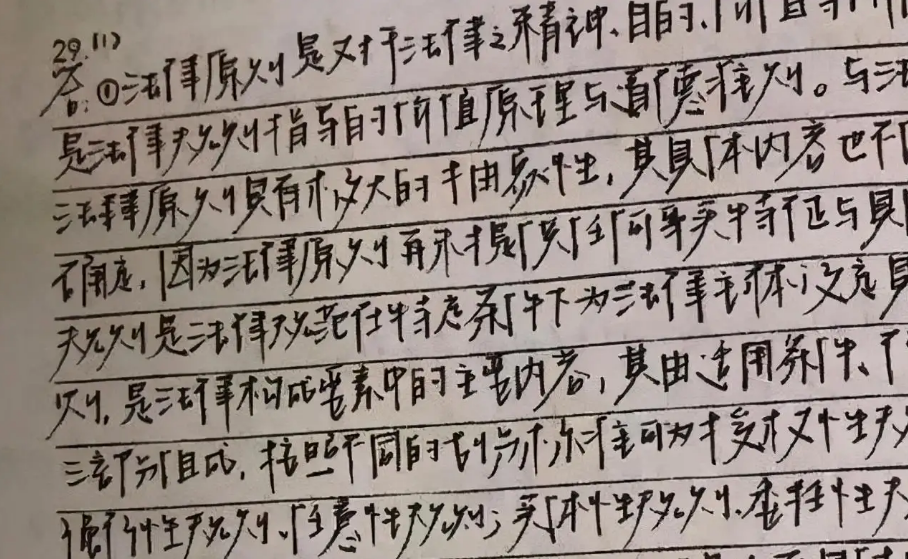 29.(1)
答:①法律原则是对于法律之精神、目的、价值等
是法律规则指导的价值原理与道德准则。与法
法律原则具有极大的抽象性,其具体内容也不
确定,因为法律原则再未提供任何事实特征与具
规则是法律规范在特定条件下为法律主体设定具
则,是法律构成要素中的主要内容,其由适用条件、
三部分组成,按照不同的划分标准可为授权性规
强行性规则、任意性规则;实体性规则、程序性